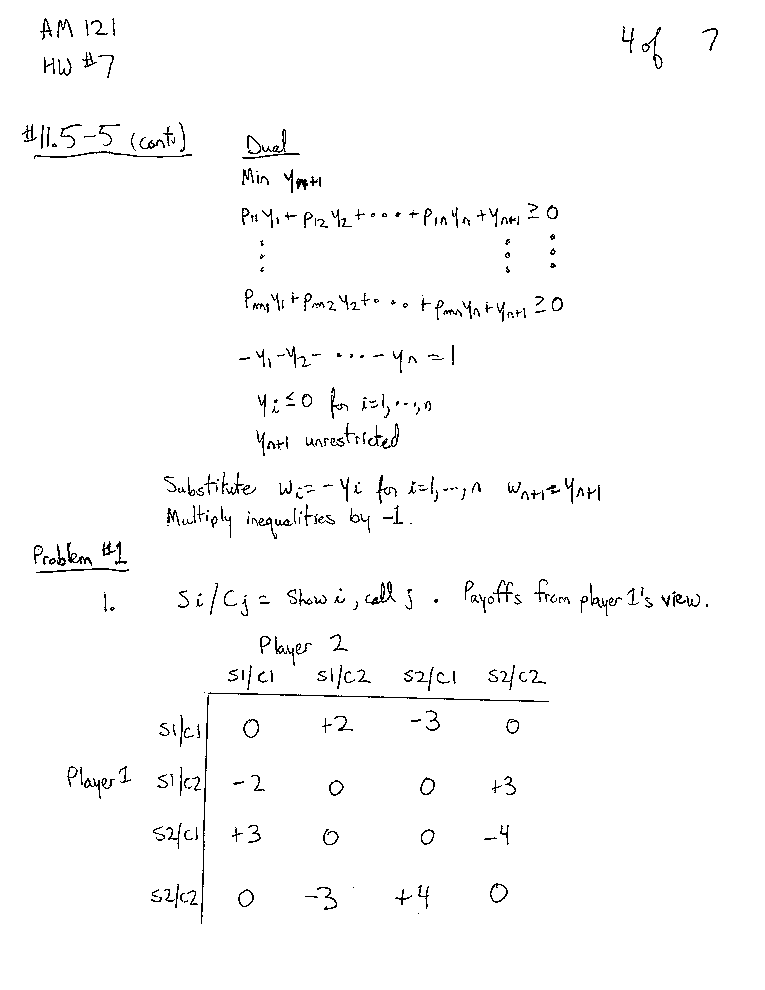 AM 121
4 of 7
HW #7
#11.5-5 (cont.)
Dual
Min yₙ₊₁
p₁₁y₁ + p₁₂y₂ + ... + p₁ₙyₙ + yₙ₊₁ ≥ 0
⋮ ⋮ ⋮
pₘ₁y₁ + pₘ₂y₂ + ... + pₘₙyₙ + yₙ₊₁ ≥ 0
-y₁ - y₂ - ... - yₙ = 1
yᵢ ≤ 0 for i=1,...,n
yₙ₊₁ unrestricted
Substitute wᵢ = -yᵢ for i=1,...,n wₙ₊₁ = yₙ₊₁
Multiply inequalities by -1.
Problem #1
1. Si/Cj = Show i, call j. Payoffs from player 1's view.
Player 2
S1/C1 S1/C2 S2/C1 S2/C2
S1/C1 0 +2 -3 0
Player 1 S1/C2 -2 0 0 +3
S2/C1 +3 0 0 -4
S2/C2 0 -3 +4 0